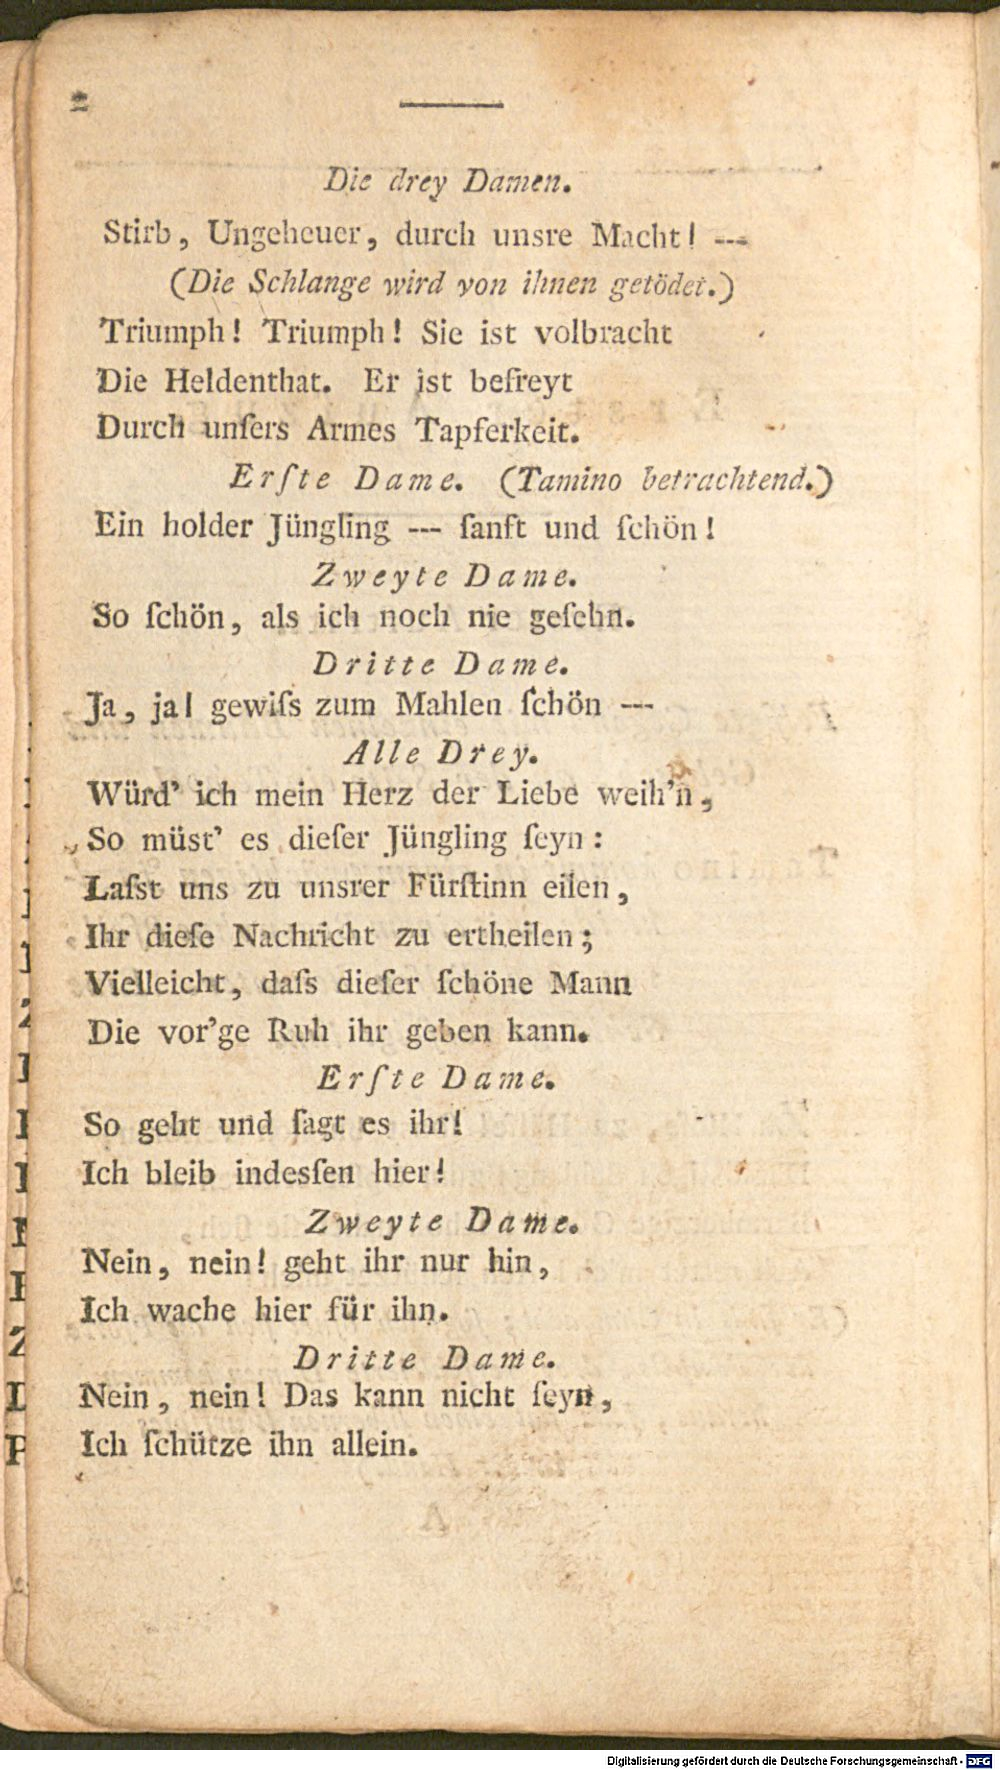 2
Die drey Damen.
Stirb, Ungeheuer, durch unsre Macht! ---
(Die Schlange wird von ihnen getödet.)
Triumph! Triumph! Sie ist volbracht
Die Heldenthat. Er ist befreyt
Durch unſers Armes Tapferkeit.
Erſte Dame. (Tamino betrachtend.)
Ein holder Jüngling --- ſanft und ſchön!
Zweyte Dame.
So ſchön, als ich noch nie geſehn.
Dritte Dame.
Ja, ja! gewiſs zum Mahlen ſchön ---
Alle Drey.
Würd' ich mein Herz der Liebe weih'n,
So müst' es dieſer Jüngling ſeyn:
Laſst uns zu unsrer Fürſtinn eilen,
Ihr dieſe Nachricht zu ertheilen;
Vielleicht, daſs dieſer ſchöne Mann
Die vor'ge Ruh ihr geben kann.
Erſte Dame.
So geht und ſagt es ihr!
Ich bleib indesſen hier!
Zweyte Dame.
Nein, nein! geht ihr nur hin,
Ich wache hier für ihn.
Dritte Dame.
Nein, nein! Das kann nicht ſeyn,
Ich ſchütze ihn allein.
Digitalisierung gefördert durch die Deutsche Forschungsgemeinschaft - DFG